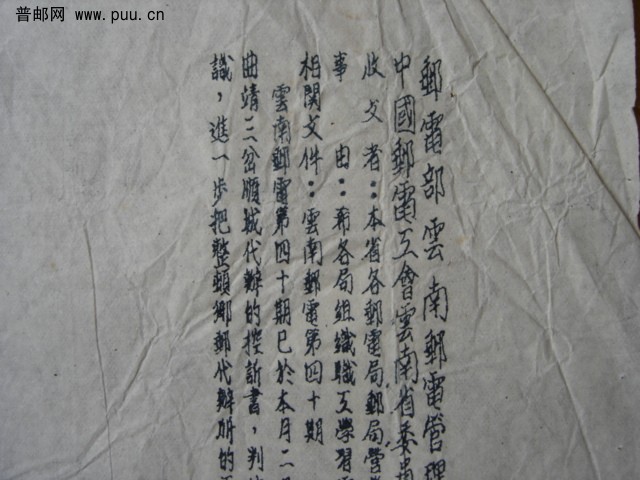 普邮网 www.puu.cn
郵電部雲南郵電管理
中國郵電工會雲南省委員
收文者：本省各郵電局郵局營業
事由：希各局組織職工學習雲
相関文件：雲南郵電第四十期
雲南郵電第四十期已於本月二
曲靖三岔順城代辦的控訴書，判
識，進一步把整頓鄉郵代辦所的